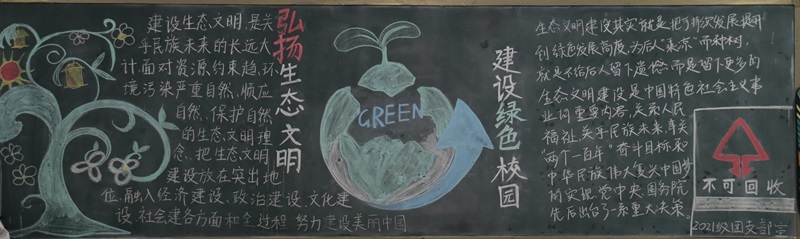 建设生态文明,是关
乎民族未来的长远大
计,面对资源约束趋
环境污染严重自然,顺应
自然、保护自然
的生态文明理
念,把生态文明
建设放在突出地
位,融入经济建设、政治建设、文化建
设、社会建各方面和全过程,努力建设美丽中国
弘扬生态文明
GREEN
建设绿色校园
生态文明建设其实就是把可持续发展提
到绿色发展高度,为后人“乘凉”而种树,
就是不给后人留下遗憾而是留下更多的
生态文明建设是中国特色社会主义事
业的重要内容,关系人民
福祉,关乎民族未来,事关
“两个一百年”奋斗目标和
中华民族伟大复兴中国梦
的实现,党中央国务院
先后出台了一系重大决策
不可回收
2021级团支部宣